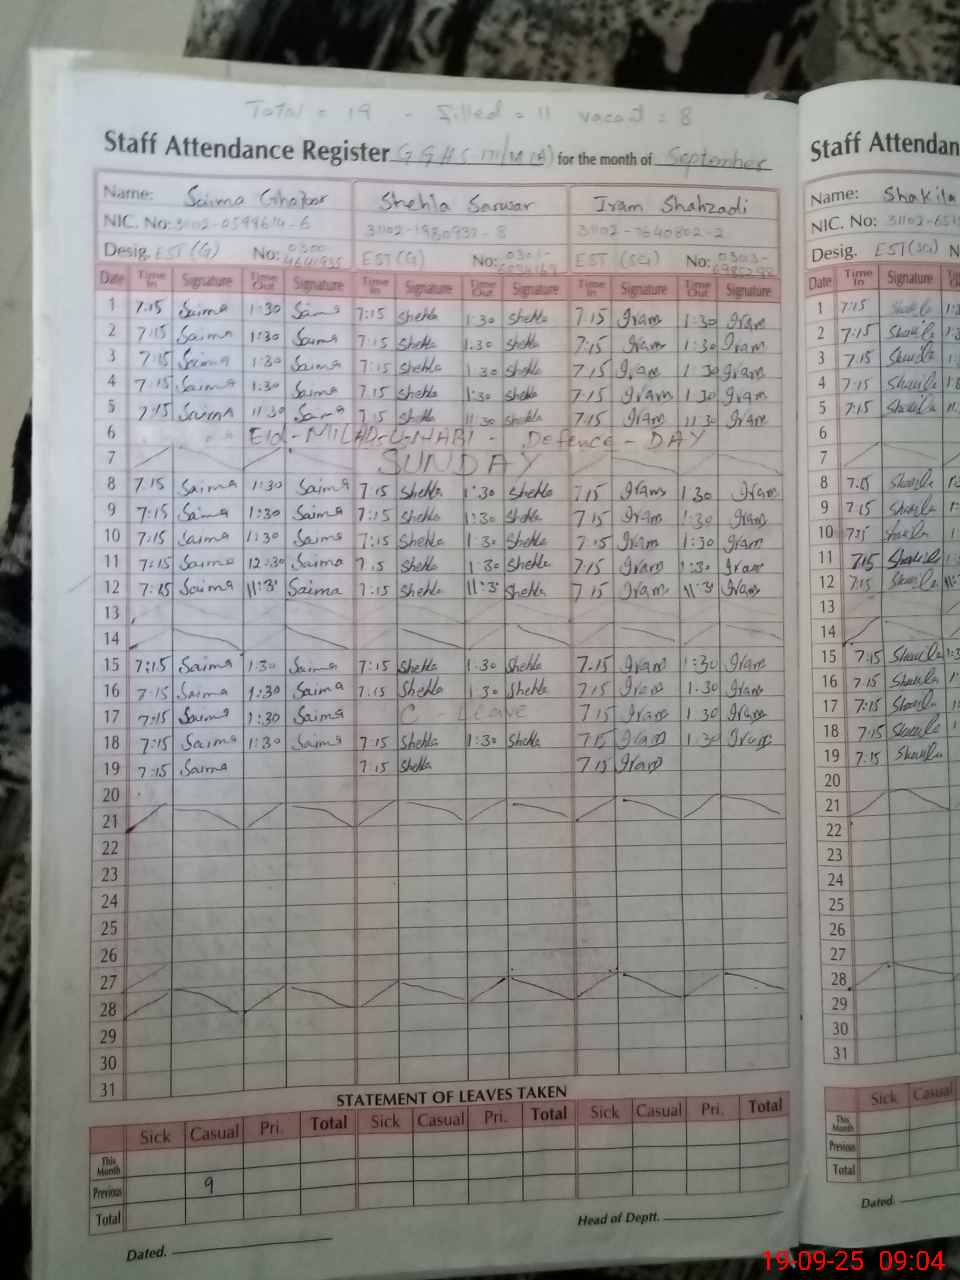 Total = 19 - Filled = 11 vacant = 8
Staff Attendance Register GGHS for the month of September
Name: Saima Ghafoor Shehla Sarwar Iram Shahzadi
NIC. No: 31102-0599614-6 31102-1980937-8 31102-7640802-2
Desig. EST (G) No: 0300- EST(G) No: 0301- EST (SG) No: 0303-
Date Time In Signature Time Out Signature Time In Signature Time Out Signature Time In Signature Time Out Signature
1 7.15 Saima 1:30 Saima 7:15 Shehla 1:30 Shehla 7:15 Iram 1:30 Iram
2 7:15 Saima 1:30 Saima 7:15 Shehla 1.30 Shehla 7:15 Iram 1:30 Iram
3 7:15 Saima 1:30 Saima 7:15 Shehla 1:30 Shehla 7.15 Iram 1:30 Iram
4 7:15 Saima 1.30 Saima 7.15 Shehla 1:30 Shehla 7:15 Iram 1.30 Iram
5 7:15 Saima 11:30 Saima 7:15 Shehla 11:30 Shehla 7:15 Iram 11:30 Iram
6 Eid-MILAD-U-NABI - Defence - DAY
7 SUNDAY
8 7.15 Saima 1:30 Saima 7.15 Shehla 1:30 Shehla 7:15 Iram 1:30 Iram
9 7:15 Saima 1:30 Saima 7:15 Shehla 1:30 Shehla 7:15 Iram 1:30 Iram
10 7:15 Saima 1:30 Saima 7:15 Shehla 1:30 Shehla 7:15 Iram 1:30 Iram
11 7:15 Saima 12:30 Saima 7:15 Shehla 1:30 Shehla 7:15 Iram 1:30 Iram
12 7:15 Saima 11:3 Saima 7:15 Shehla 11:3 Shehla 7 15 Iram 11:3 Iram
13
14
15 7:15 Saima 1:30 Saima 7:15 Shehla 1.30 Shehla 7.15 Iram 1:30 Iram
16 7:15 Saima 1:30 Saima 7:15 Shehla 1:30 Shehla 7:15 Iram 1.30 Iram
17 7:15 Saima 1:30 Saima C - Leave 7 15 Iram 1:30 Iram
18 7:15 Saima 1:30 Saima 7:15 Shehla 1:30 Shehla 7:15 Iram 1.30 Iram
19 7:15 Saima 7:15 Shehla 7:15 Iram
20
21
22
23
24
25
26
27
28
29
30
31
STATEMENT OF LEAVES TAKEN
Sick Casual Pri. Total Sick Casual Pri. Total Sick Casual Pri. Total
This Month
Previous 9
Total
Dated. Head of Deptt.
Staff Attendan
Name: Shakila
NIC. No: 31102-
Desig. EST (SG)
Date Time In Signature
1 7:15 Shakila
2 7:15 Shakila
3 7.15 Shakila
4 7:15 Shakila
5 7:15 Shakila
6
7
8 7.15 Shakila
9 7:15 Shakila
10 7:15 Shakila
11 7:15 Shakila
12 7:15 Shakila
13
14
15 7:15 Shakila
16 7:15 Shakila
17 7:15 Shakila
18 7:15 Shakila
19 7:15 Shakila
20
21
22
23
24
25
26
27
28
29
30
31
Sick Casual
This Month
Previous
Total
Dated.
19-09-25 09:04